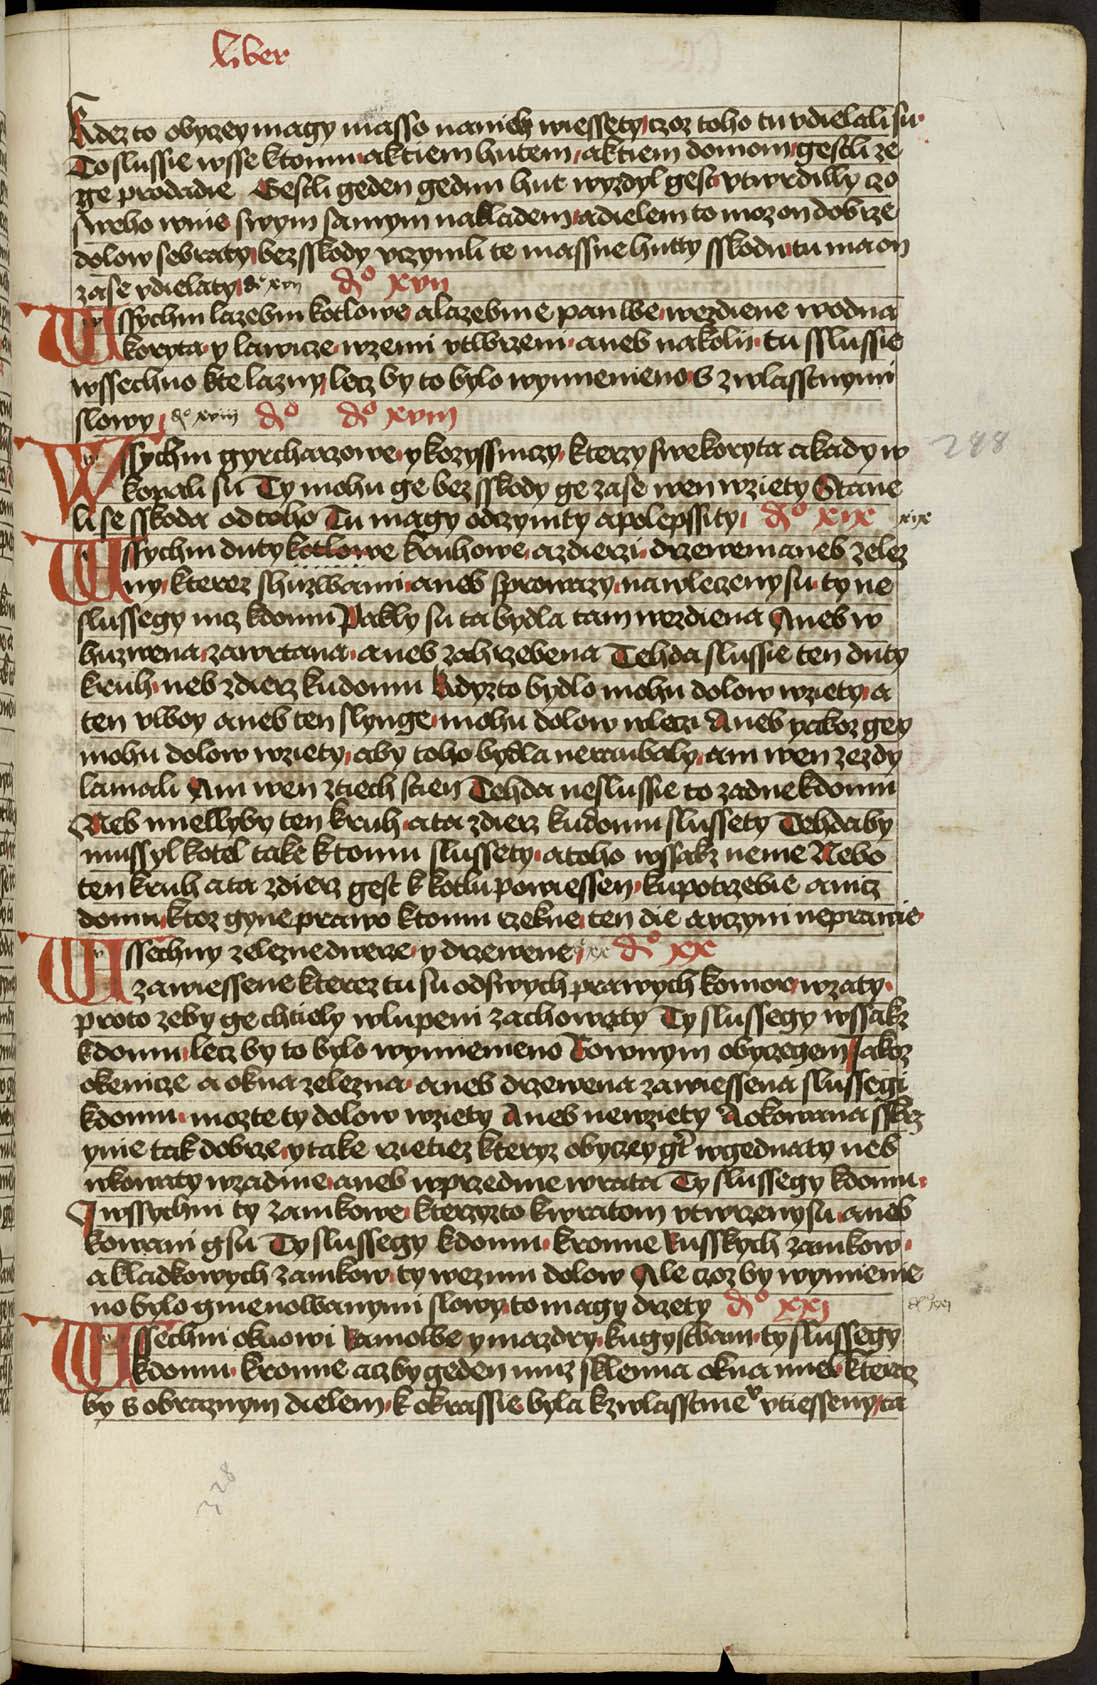 Liber
Kdez to obyczey magy masso nanich wiessety czoz toho tu vdielali su
To slussie wsse ktomu aktiem hutem aktiem domom gestli ze
ge prodadie Gestli geden gednu hut wyzdyl gest vtwrdilly czo
sweho wnie swym samym nakladem adielem to moz on dobrze
dolow sebraty bez sskody vczynili te massne hutty sskodu tu ma on
zase vdielaty d° xvii d° xvii
Wssychni lazebni kotlowe a lazebnie panwe wezdiene wodna
koryta y lawicze wzemi vtwrzeni aneb nakolii tu sslussie
wssechno kte lazny lecz by to bylo wynnemieno s zwlasstnymi
slowy d° xviii d° d° xviii
Wssychni gyrcharzowe y kozyssniczy kterzy swe koryta a kady w
kopali su Ty mohu ge bez sskody ge zase wen wziety Stane
li se sskoda od toho Tu magy odczynity a polepssity d° xix xix
Wssychni duty kotlowe kruhowe a zdierzi drzewem aneb zelez
ny kterez shuzwami aneb sprowazy nawleczeny su ty ne
slussegy nicz kdomu Pakly su ta bydla tam wezdiena Aneb w
huzwena zawrtana aneb zahrzebena Tehda slussie ten duty
kruh neb zdierz kudomu Kdyzto bydlo mohu dolow wziety a
ten vlboy aneb ten slynge mohu dolow wlecz Aneb yakoz gey
mohu dolow wziety aby toho bydla nerrubaly ani wen zezdy
lamali Ani wen ztiech stien Tehda neslussie to zadne kdomu
Neb mellyby ten kruh a ta zdierz kudomu slussety Tehda by
mussyl kotel take ktomu slussety a toho wssak neme Nebo
ten kruh a ta zdierz gest k kotlu powiessen kupotrzebie a nicz
domu ktoz gyne prawo ktomu rzekne ten die a vczyni neprawie
Wssechny zelezne dwerze y drzewene xx d° xx
zawiessene kterez tu su odswych prawych komor wzaty
proto zeby ge chtiely wlupeni zachowaty Ty slussegy wssak
kdomu lecz by to bylo wynnemieno Rownym obyczegem Jakoz
okenicze a okna zelezna aneb drzewena zawiessena slussegi
kdomu mozte ty dolow wziety Aneb newziety A okowana sskrz
ynie tak dobrze y take rzietiez kteryz obyczey gt wgednaty neb
wkowaty wzadnie aneb wprzednie wrata Ty slussegy kdomu
J wssychni ty zamkowe kterzyzto kwratom vtwrzeny su aneb
kowani gsu Ty slussegy kdomu kromie Russkych zamkow
a kladkowych zamkow ty wezmu dolow Ale czoz by wynnienie
no bylo gmenowanymi slowy to magy drzety d° xxi d° xxi
Wssechni oknowi Ramowe y mazdry kugystbam ty slussegy
kdomu kromie aczby geden muz sklenna okna miel kterez
by s obraznym dielem k okrassie byla kzwlasstnie vtiesseny ta
288
328